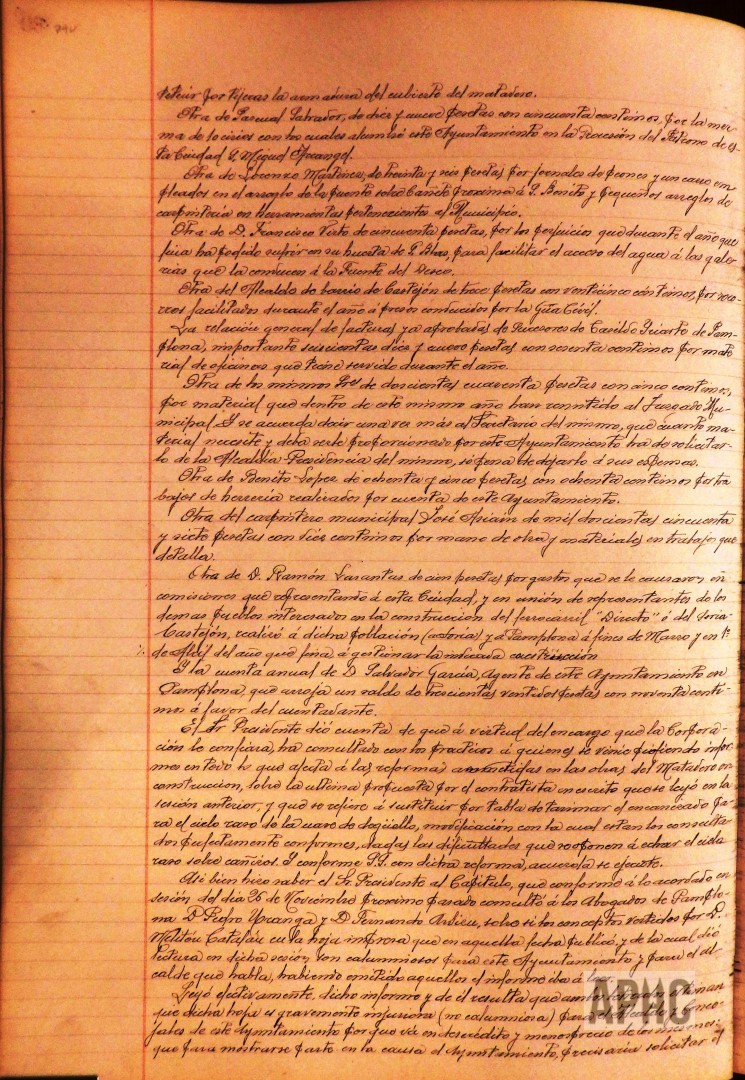 tituir por tijeras la armadura del cubierto del matadero.
Otra de Pascual Salvador, de diez y nueve pesetas con cincuenta centimos, por la mer
ma de los cirios con los cuales alumbró este Ayuntamiento en la Procesión del Patrono de es
ta Ciudad S. Miguel Arcangel.
Otra de Lorenzo Martinez, de treinta y seis pesetas por jornales de peones y un carro em
pleados en el arreglo de la puente sobre Cañete proxima á S. Benito y pequeños arreglos de
carpinteria en herramientas pertenecientes al Municipio.
Otra de D. Francisco Virto de cincuenta pesetas, por los perjuicios que durante el año que
fina ha podido sufrir en su huerta de S. Blas, para facilitar el acceso del agua á las gale
rias que la conducen á la Fuente del Deseo.
Otra del Alcalde de barrio de Castejón de trece pesetas con venticinco céntimos, por soco
rros facilitados durante el año á presos conducidos por la Gia Civil.
La relación general de facturas ya aprobadas de Sucesores de Casildo Iriarte de Pam
plona, importante seiscientas diez y nueve pesetas con sesenta centimos por mate
rial de oficinas que tiene servido durante el año.
Otra de los mismos Sres de doscientas cuarenta pesetas con cinco centimos,
por material que dentro de este mismo año han remitido al Juzgado Mu-
nicipal. Y se acuerda decir una vez más al Secretario del mismo, que cuanto ma-
terial necesite y deba serle proporcionado por este Ayuntamiento ha de solicitar-
lo de la Alcaldia-Presidencia del mismo, so pena de dejarlo á sus espensas.
Otra de Benito Lopez de ochenta y cinco pesetas con ochenta centimos por tra
bajos de herreria realizados por cuenta de este Ayuntamiento.
Otra del carpintero municipal José Asiain de mil doscientas cincuenta
y siete pesetas con diez centimos por mano de obra y materiales en trabajos que
detalla.
Otra de D. Ramón Lasantas de cien pesetas por gastos que se le causaron en
comisiones que representando á esta Ciudad, y en unión de representantes de los
demas pueblos interesados en la construccion del ferrocarril "Directo" ó del Soria-
Castejón, realizó á dicha población (Soria) y á Pamplona á fines de Marzo y en 1º
de Abril del año que fina á gestionar la indicada construcción
Y la cuenta anual de D. Salvador García, Agente de este Ayuntamiento en
Pamplona, que arroja un saldo de trescientas ventidos pesetas con noventa centi-
mos á favor del cuentadante.
El Sr Presidente dió cuenta de que á virtud del encargo que la Corpora-
ción le confiara, ha consultado con los practicos á quienes se vinie pidiendo infor-
mes en todo lo que afecta á las reformas acometidas en las obras del Matadero en
construccion, sobre la ultima propuesta por el contratista en escrito que se leyó en la
sesión anterior, y que se refiere á sustituir por tabla de tarimar el encanizado pa-
ra el cielo raso de la nave de degüello, modificación con la cual estan los consulta-
dos perfectamente conformes, dadas las dificultades que se oponen á echar el cielo
raso sobre cañizos. Y conforme S.S. con dicha reforma, acuerda se ejecute.
Asi bien hizo saber el Sr Presidente al Capitulo, que conforme á lo acordado en
sesión del dia 26 de Noviembre proximo pasado consultó á los Abogados de Pamplo-
na D Pedro Uranga y D Fernando Arbieu, sobre si los conceptos vertidos por D.
Melitón Catalán en la hoja impresa que en aquella fecha publicó, y de la cual dió
lectura en dicha sesión son calumniosos para este Ayuntamiento y para el al-
calde que habla, habiendo emitido aquellos el informe iba á leer.
Leyó efectivamente, dicho informe y de el resulta que
que dicha hoja es gravemente injuriosa (no calumniosa) para el Alcalde y Conce-
jales de este Ayuntamiento por que vá en descrédito y menosprecio de los mismos:
que para mostrarse parte en la causa el Ayuntamiento, precisaria solicitar el
APMC